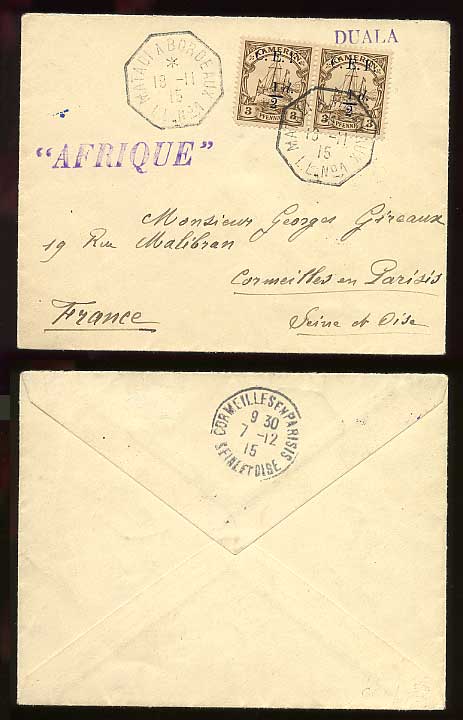 DUALA
MATADI A BORDEAUX
*
13 -11
15
L.L. No 1
KAMERUN KAMERUN
C.E.F. C.E.F.
1/2 d. 1/2 d.
3 PFENNIG 3 3 PFENNIG 3
13 -11
15
L.L. No 1
"AFRIQUE"
Monsieur Georges Gireaux
19 Rue Malibran
Cormeilles en Parisis
France
Seine et Oise
CORMEILLES EN PARISIS
9 30
7 -12
15
SEINE ET OISE